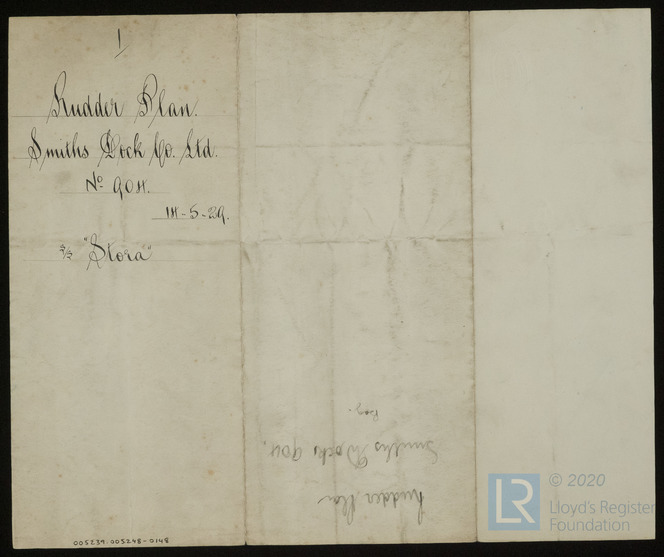 1
Rudder Plan.
Smiths Dock Co. Ltd.
No 904.
14-5-29.
S/S "Stora"
Smiths Dock 904.
Rudder Plan
005239.005248-0148
LR
© 2020
Lloyd's Register
Foundation